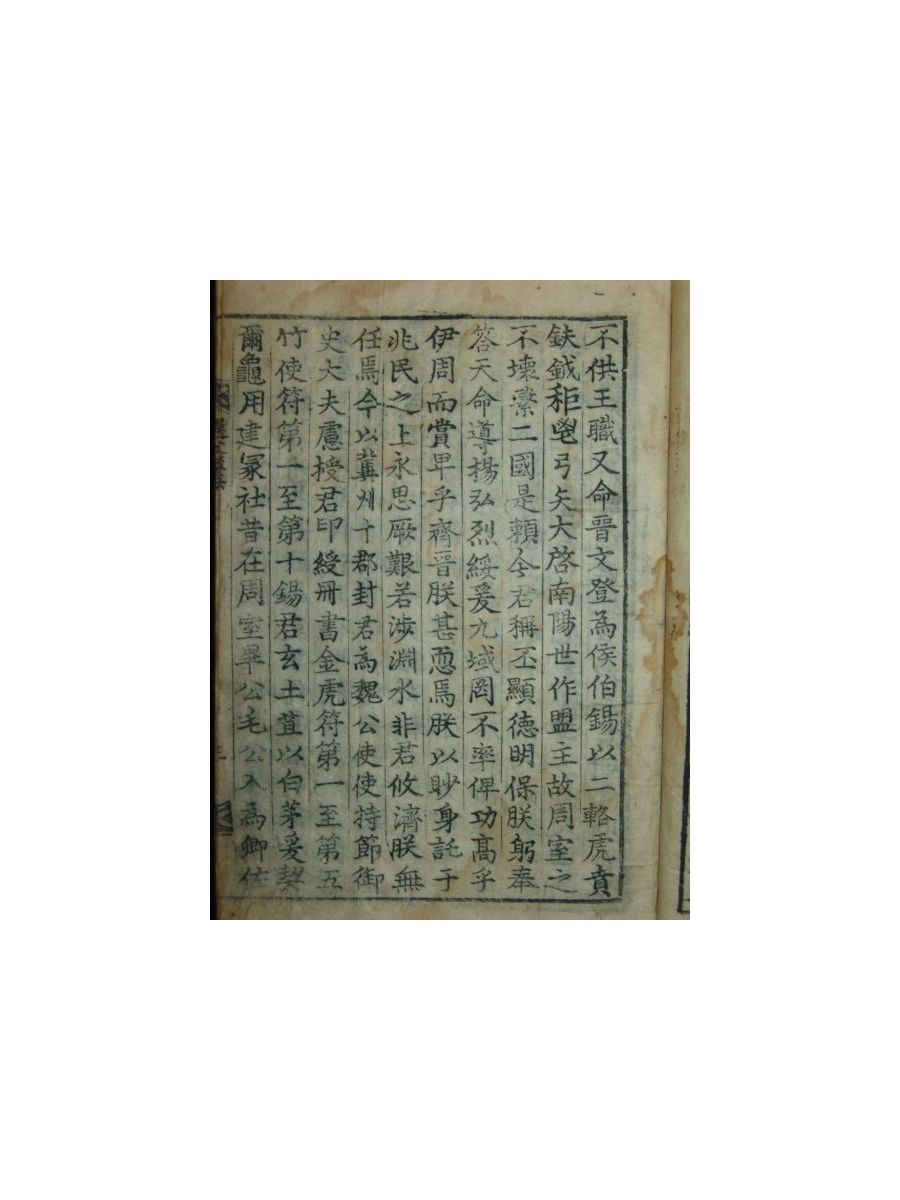 不供王職又命晉文登為侯伯錫以二輅虎賁
鈇鉞秬鬯弓矢大啓南陽世作盟主故周室之
不壞繄二國是賴今君稱丕顯德明保朕躬奉
答天命導揚弘烈綏爰九域罔不率俾功高乎
伊周而賞卑乎齊晉朕甚恧焉朕以眇身託于
兆民之上永思厥艱若涉淵水非君攸濟朕無
任焉今以冀州十郡封君為魏公使使持節御
史大夫慮授君印綬冊書金虎符第一至第五
竹使符第一至第十錫君玄土苴以白茅爰契
爾龜用建冢社昔在周室畢公毛公入為卿佐